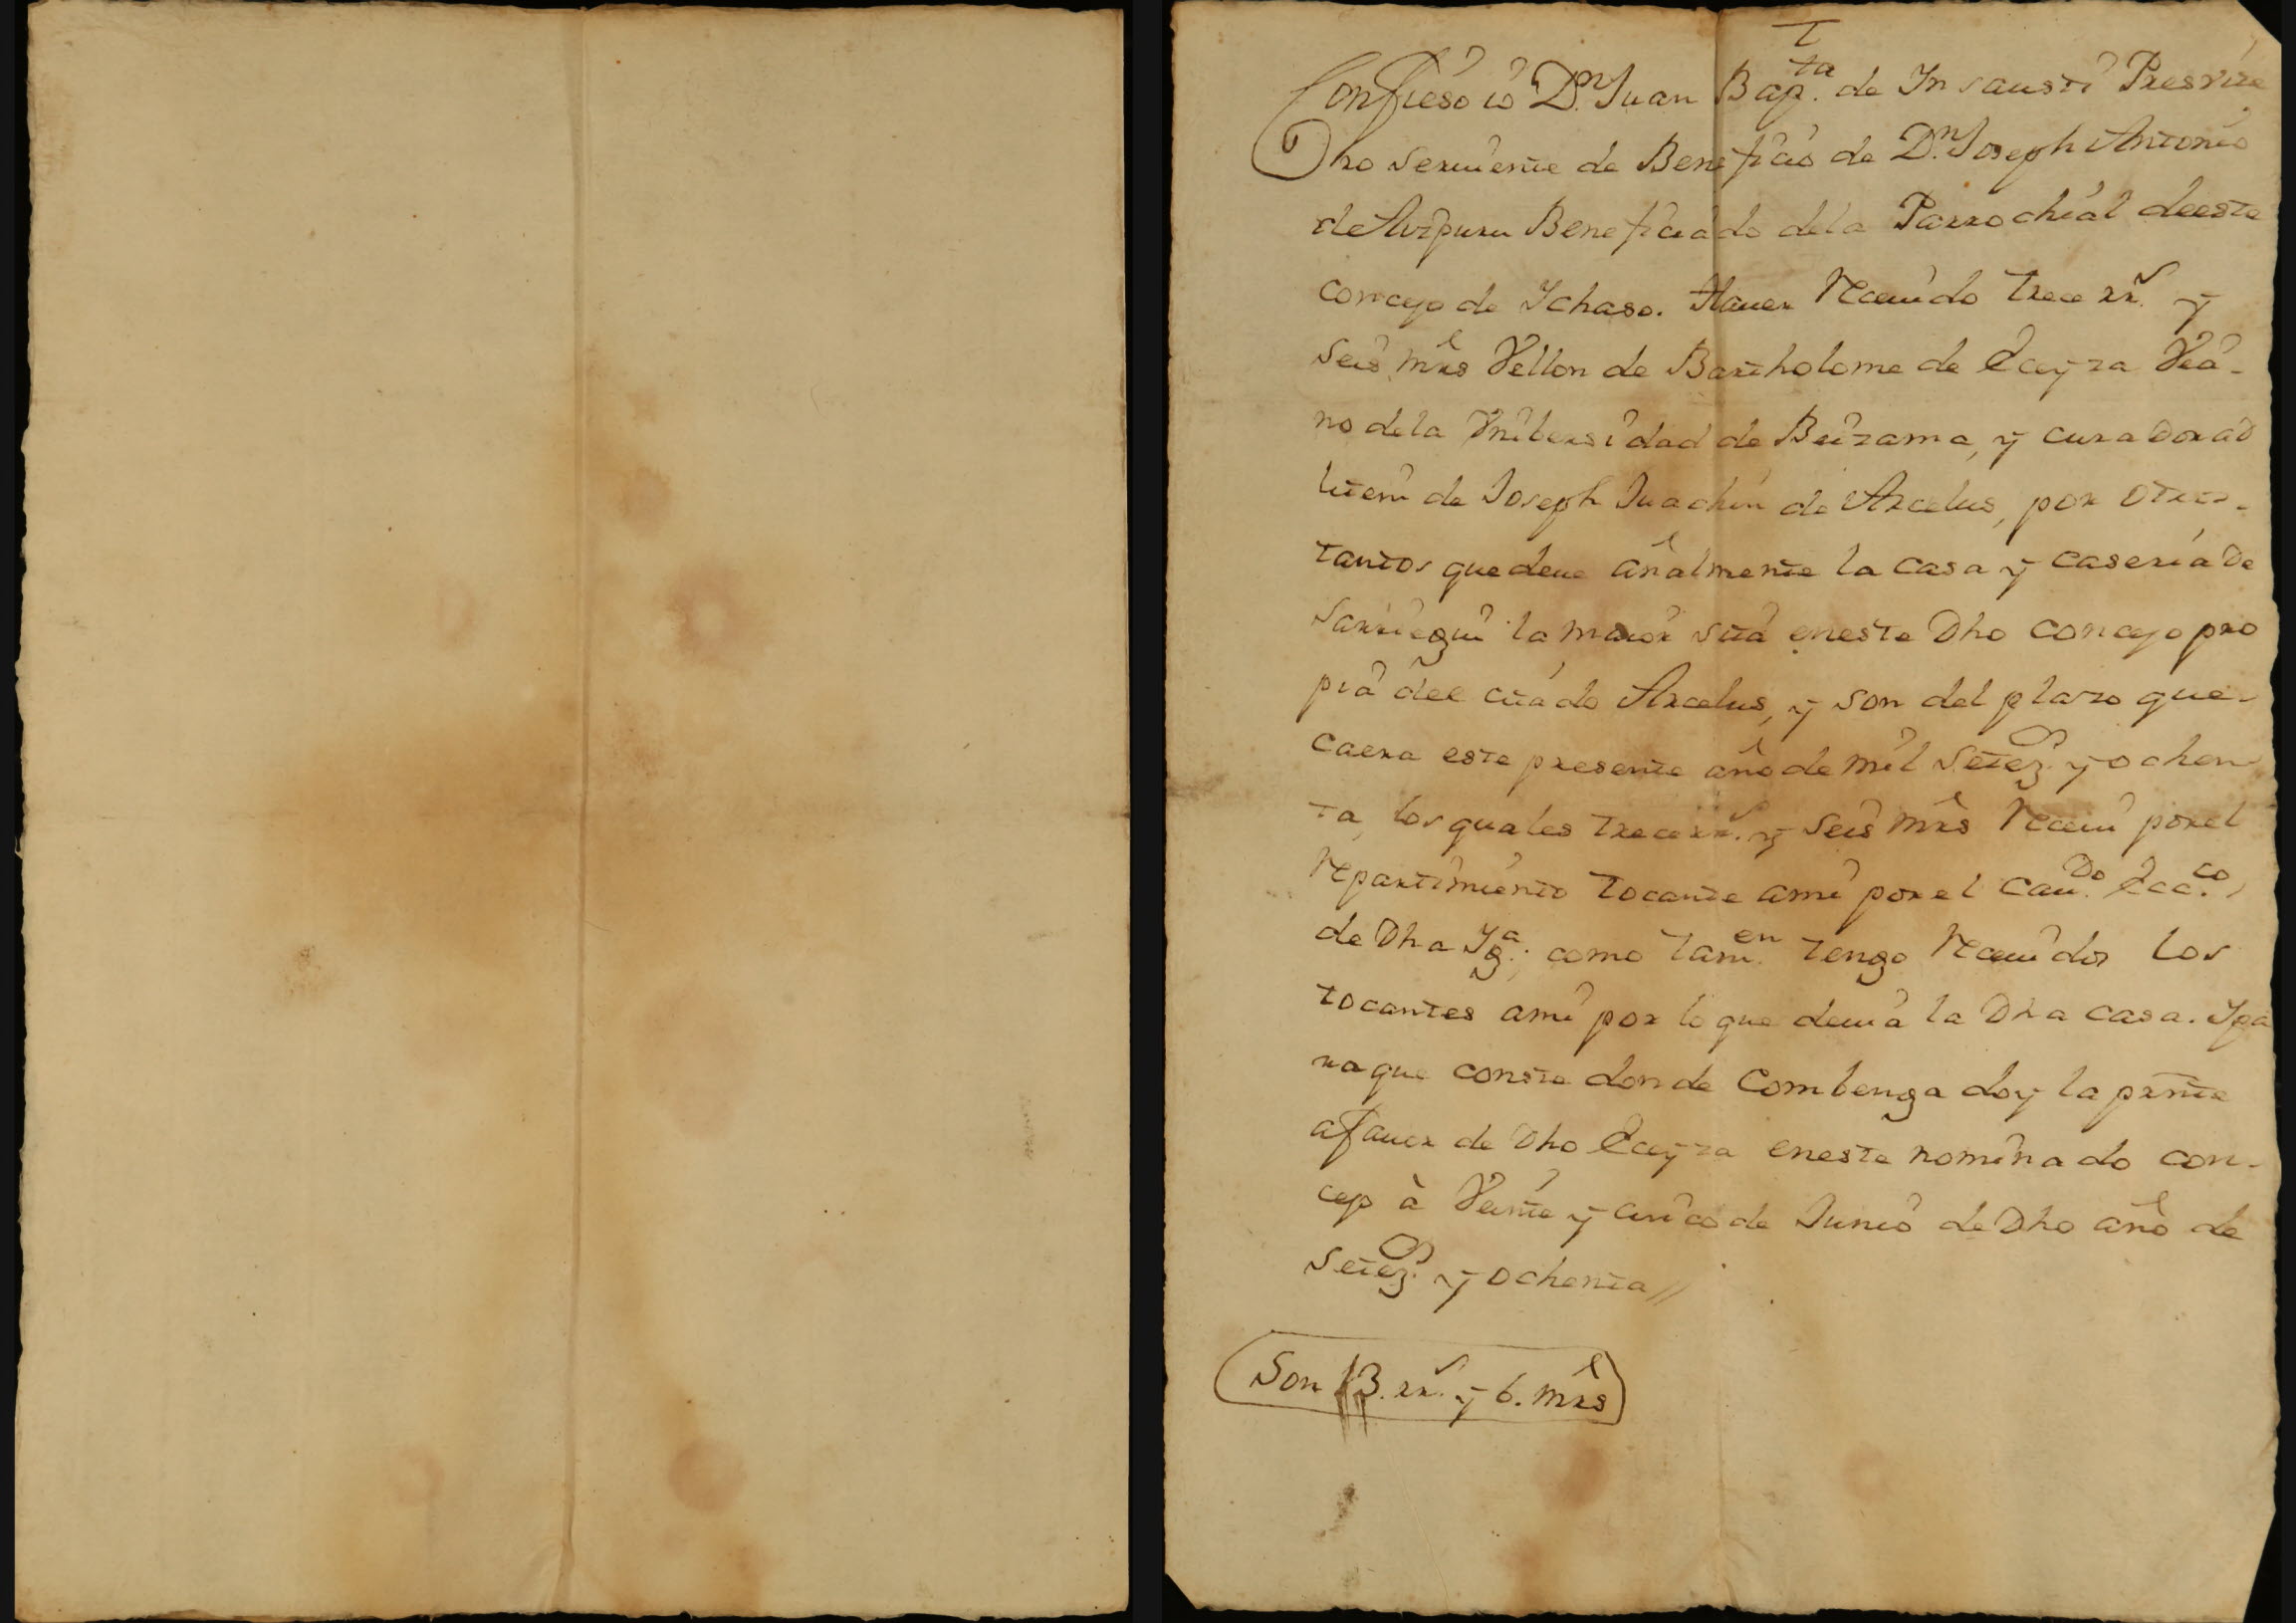 T
Confieso io Dn. Juan Bapta. de Insausti Presvite
Oho seruiente de Beneficio de Dn. Joseph Antonio
de Beneficiado dela Parrochial deeste
concejo de Ichaso. Hauer Receuido trece rrs. y
seis mrs Vellon de Bartholome de Eceyza Veci-
no dela Vnibersidad de Beizama, y curador ad
litem de Joseph Juachin de Arcelus, por otros-
tantos quedeue añalmente la casa y caseria de
Sarriegui la maior sita eneste Dho concejo pro
pia del citado Arcelus, y son del plazo que-
caera este presente año de mil Setez. y ochen
ta, los quales trece rrs. y seis mrs Receui por el
Repartimiento tocante ami por el Caudo. Ecco.,
de Dha Iga.; como tamen. tengo Receuidos los
tocantes ami por lo que deuia la Dha casa. Ypa
raque conste donde Combenga doy la prnte
afauor de Dho Eceyza eneste nominado con-
cejo à Veinte y cinco de Junio de Dho año de
Setez. y ochenta//
Son 13. rrs. y 6. mrs